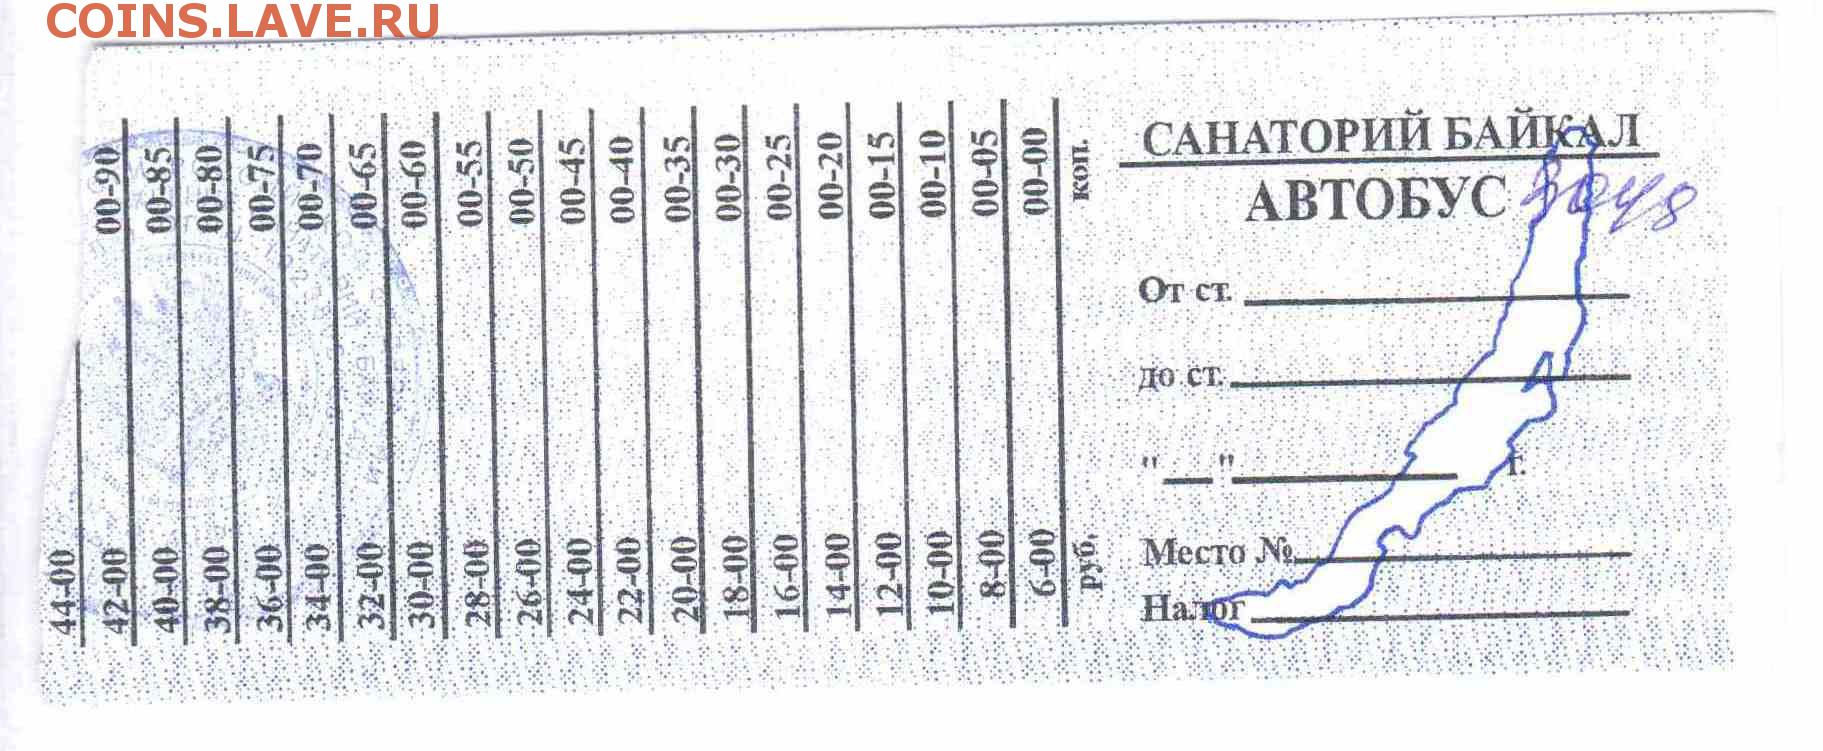 COINS.LAVE.RU
САНАТОРИЙ БАЙКАЛ
АВТОБУС
От ст.
до ст.
" " г.
Место №
Налог
коп. руб.
00-00 6-00
00-05 8-00
00-10 10-00
00-15 12-00
00-20 14-00
00-25 16-00
00-30 18-00
00-35 20-00
00-40 22-00
00-45 24-00
00-50 26-00
00-55 28-00
00-60 30-00
00-65 32-00
00-70 34-00
00-75 36-00
00-80 38-00
00-85 40-00
00-90 42-00
44-00